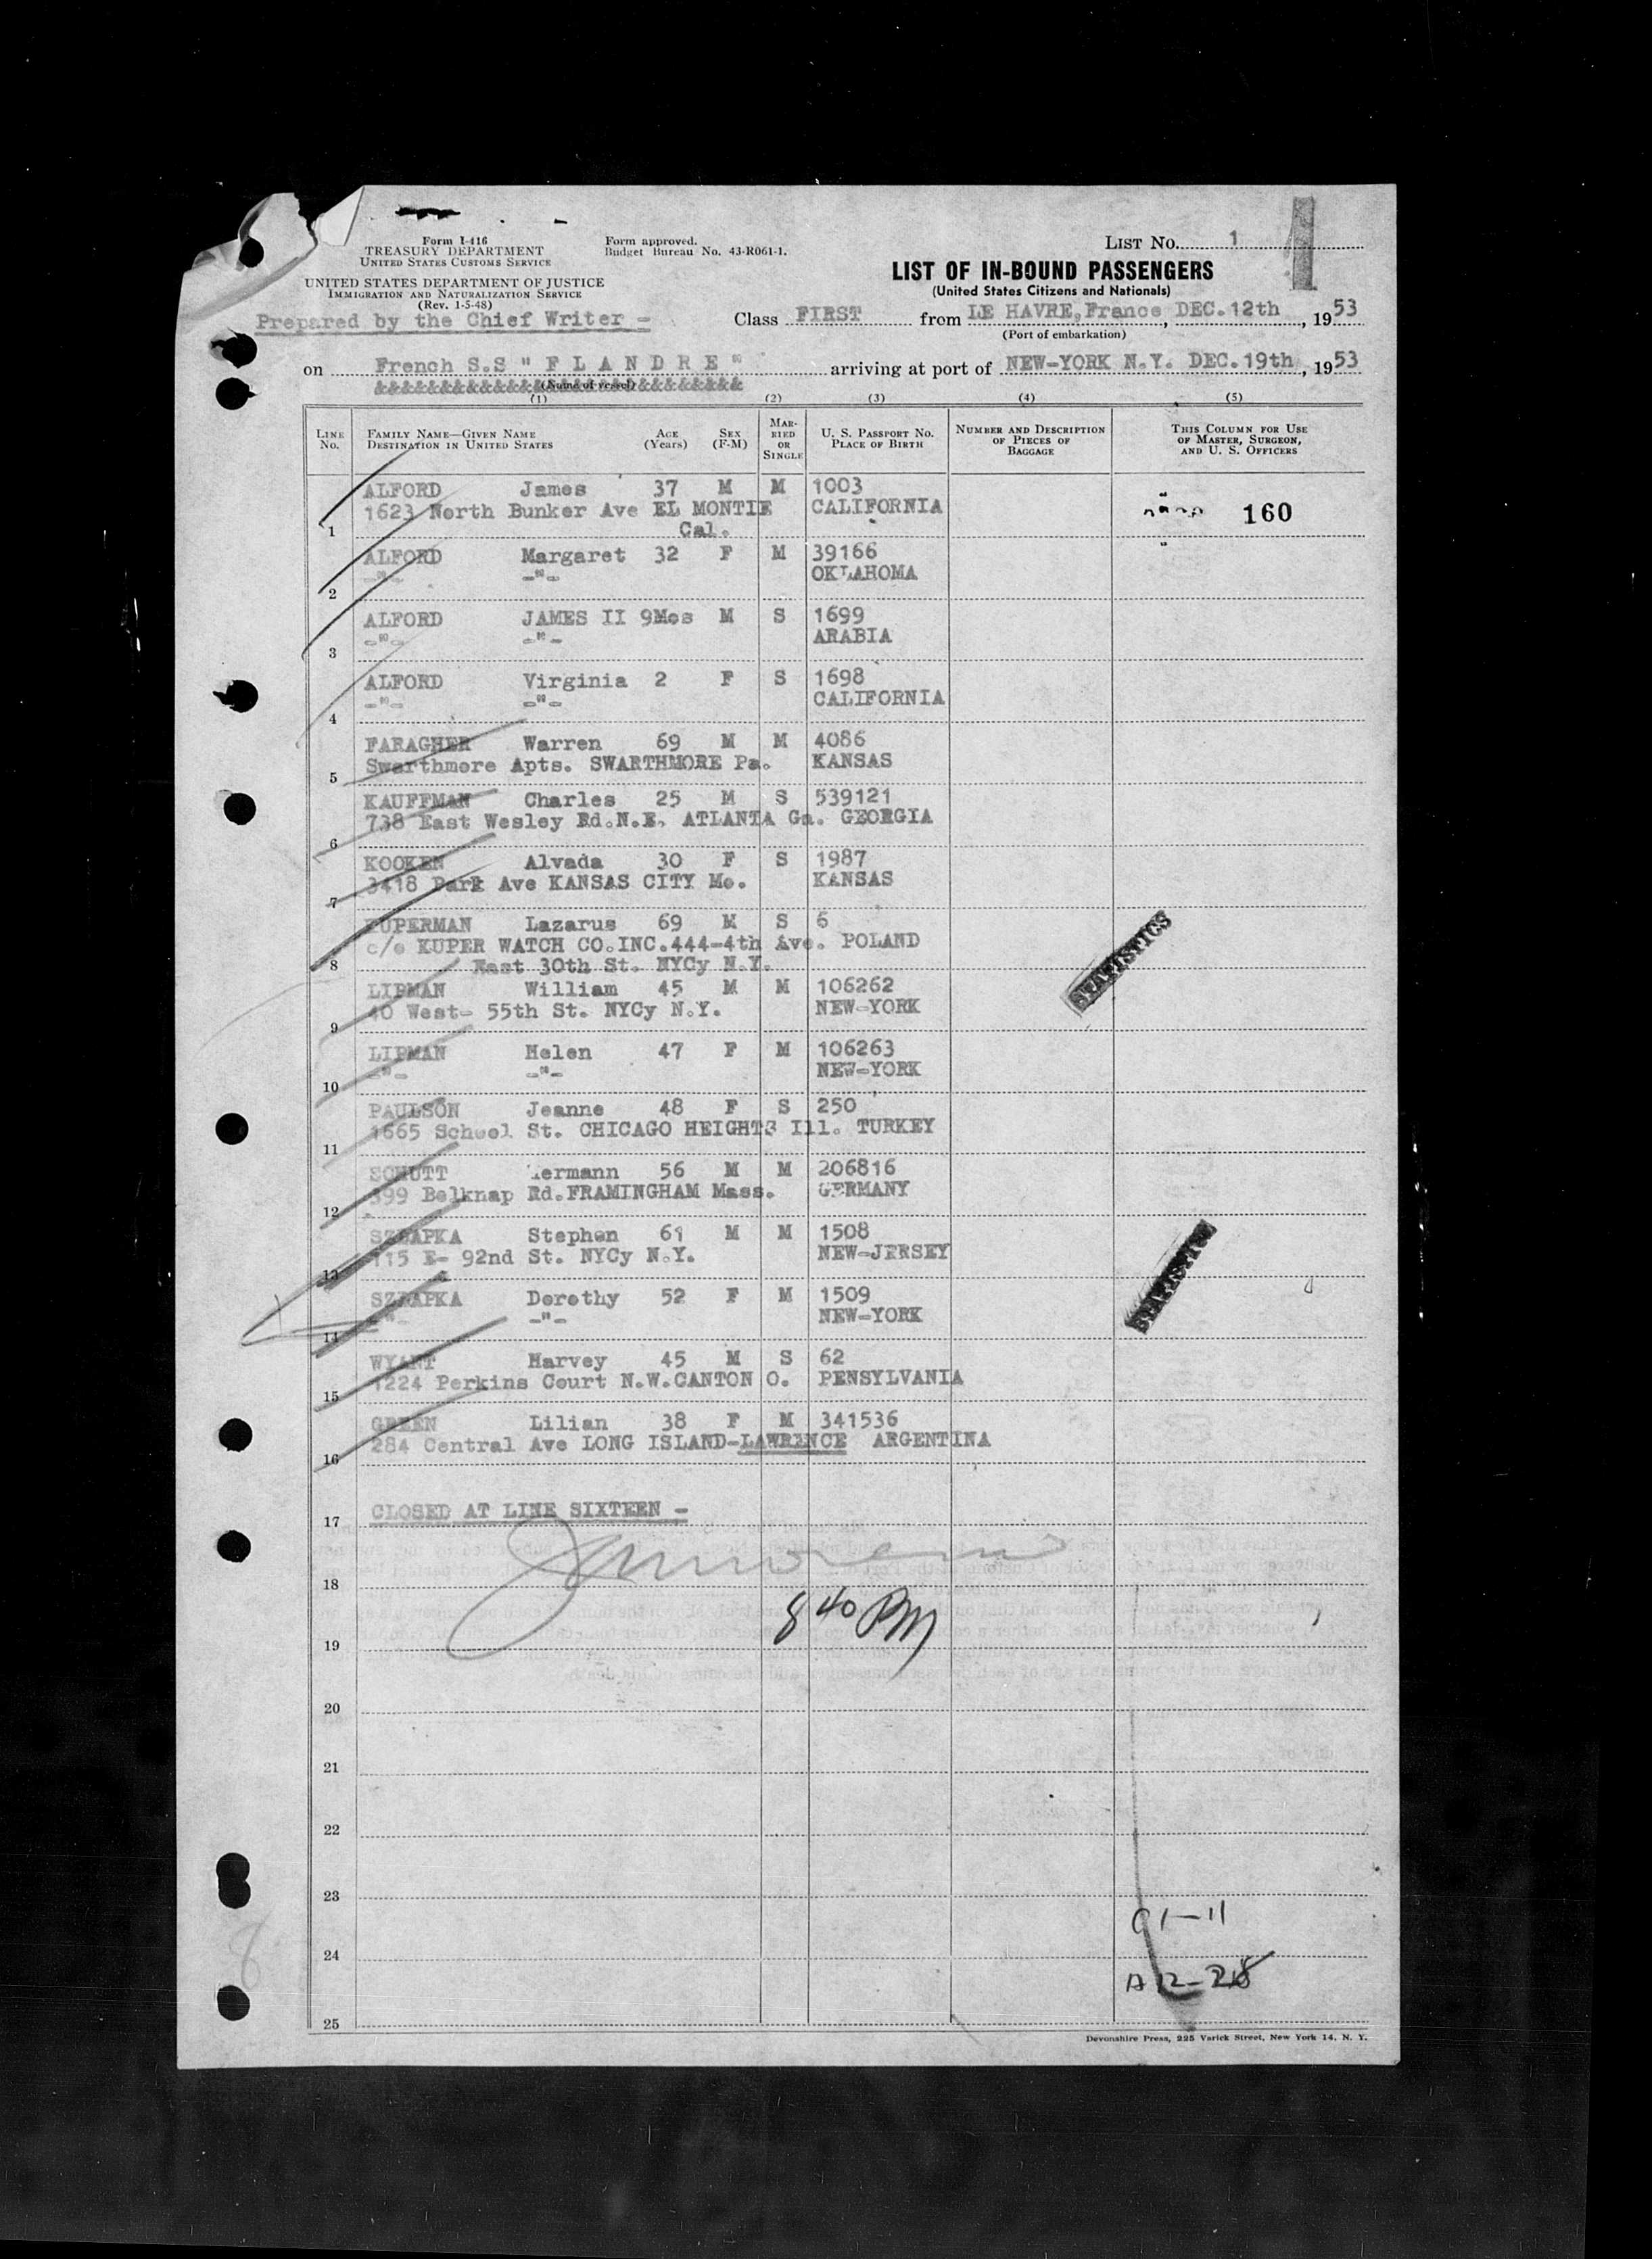 Form I-416
TREASURY DEPARTMENT
UNITED STATES CUSTOMS SERVICE
Form approved.
Budget Bureau No. 43-R061-1.
LIST NO. 1
UNITED STATES DEPARTMENT OF JUSTICE
IMMIGRATION AND NATURALIZATION SERVICE
(Rev. 1-5-48)
LIST OF IN-BOUND PASSENGERS
(United States Citizens and Nationals)
Prepared by the Chief Writer -
Class FIRST from LE HAVRE, France, DEC. 12th, 1953
(Port of embarkation)
on French S.S " F L A N D R E " arriving at port of NEW-YORK N.Y. DEC. 19th, 1953
(Name of vessel)
(1) (2) (3) (4) (5)
LINE NO. FAMILY NAME—GIVEN NAME DESTINATION IN UNITED STATES AGE (Years) SEX (F-M) MARRIED OR SINGLE U. S. PASSPORT NO. PLACE OF BIRTH NUMBER AND DESCRIPTION OF PIECES OF BAGGAGE THIS COLUMN FOR USE OF MASTER, SURGEON, AND U. S. OFFICERS
ALFORD James 37 M M 1003
1623 North Bunker Ave EL MONTIE CALIFORNIA 160
1 Cal.
ALFORD Margaret 32 F M 39166
-"- -"- OKLAHOMA
2
ALFORD JAMES II 9Mos M S 1699
-"- -"- ARABIA
3
ALFORD Virginia 2 F S 1698
-"- -"- CALIFORNIA
4
FARAGHER Warren 69 M M 4086
Swarthmore Apts. SWARTHMORE Pa. KANSAS
5
KAUFFMAN Charles 25 M S 539121
738 East Wesley Rd.N.E. ATLANTA Ga. GEORGIA
6
KOOKEN Alvada 30 F S 1987
3418 Park Ave KANSAS CITY Mo. KANSAS
7
KUPERMAN Lazarus 69 M S 6
c/o KUPER WATCH CO.INC.444-4th Ave. POLAND
8 East 30th St. NYCy N.Y.
STATISTICS
LIPMAN William 45 M M 106262
40 West- 55th St. NYCy N.Y. NEW-YORK
9
LIPMAN Helen 47 F M 106263
-"- -"- NEW-YORK
10
PAULSON Jeanne 48 F S 250
1665 School St. CHICAGO HEIGHTS Ill. TURKEY
11
SCHUTT Hermann 56 M M 206816
399 Belknap Rd.FRAMINGHAM Mass. GERMANY
12
SZRAPKA Stephen 61 M M 1508
115 E- 92nd St. NYCy N.Y. NEW-JERSEY
13
STATISTICS
SZRAPKA Dorothy 52 F M 1509
-"- -"- NEW-YORK
14
WYANT Harvey 45 M S 62
1224 Perkins Court N.W.CANTON O. PENSYLVANIA
15
GREEN Lilian 38 F M 341536
284 Central Ave LONG ISLAND-LAWRENCE ARGENTINA
16
CLOSED AT LINE SIXTEEN -
17
18
8 40 PM
19
20
21
22
23
C 1-11
24
A 12-28
25
Devonshire Press, 225 Varick Street, New York 14, N. Y.